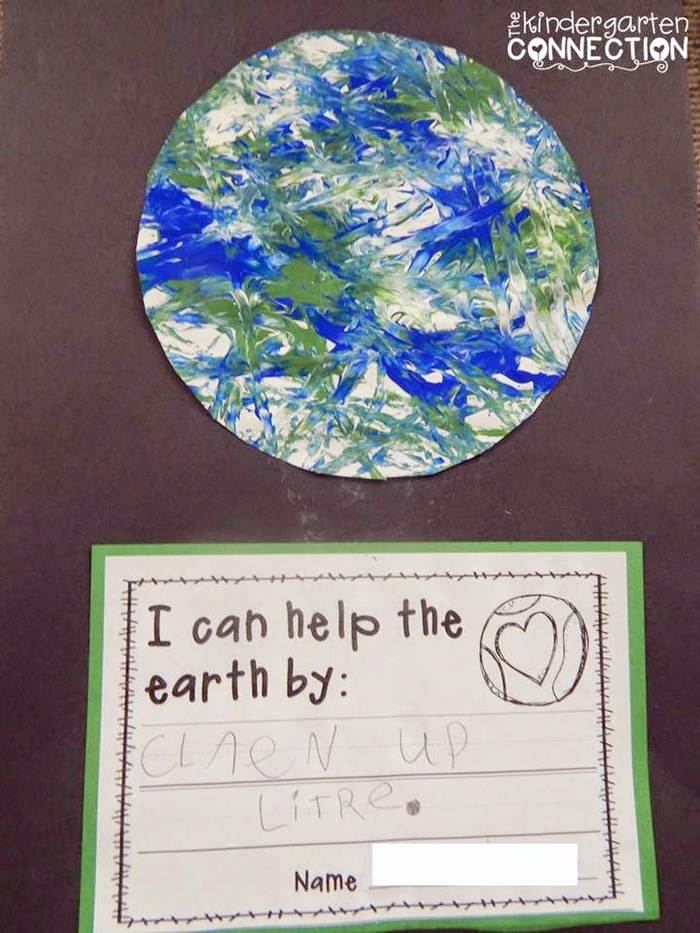 The Kindergarten
CONNECTION
I can help the
earth by:
CLAeN UP
LiTRe.
Name